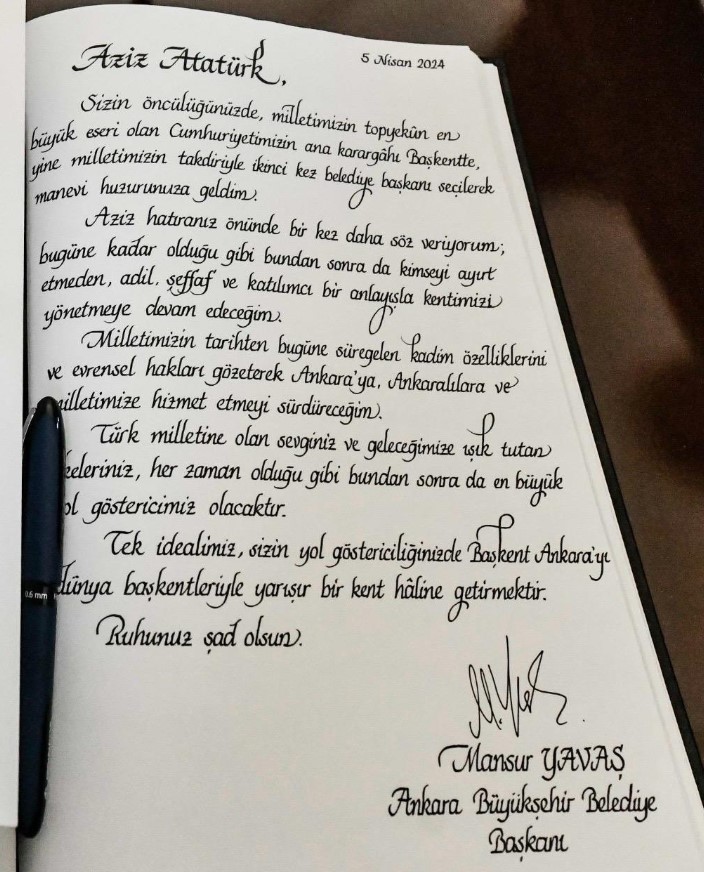 Aziz Atatürk,
5 Nisan 2024
Sizin öncülüğünüzde, milletimizin topyekûn en
büyük eseri olan Cumhuriyetimizin ana karargâhı Başkentte,
yine milletimizin takdiriyle ikinci kez belediye başkanı seçilerek
manevi huzurunuza geldim.
Aziz hatıranız önünde bir kez daha söz veriyorum;
bugüne kadar olduğu gibi bundan sonra da kimseyi ayırt
etmeden, adil, şeffaf ve katılımcı bir anlayışla kentimizi
yönetmeye devam edeceğim.
Milletimizin tarihten bugüne süregelen kadim özelliklerini
ve evrensel hakları gözeterek Ankara'ya, Ankaralılara ve
milletimize hizmet etmeyi sürdüreceğim.
Türk milletine olan sevginiz ve geleceğimize ışık tutan
keleriniz, her zaman olduğu gibi bundan sonra da en büyük
ol göstericimiz olacaktır.
Tek idealimiz, sizin yol göstericiliğinizde Başkent Ankara'yı
dünya başkentleriyle yarışır bir kent hâline getirmektir.
0.6 mm
Ruhunuz şad olsun.
M. Yavaş
Mansur YAVAŞ
Ankara Büyükşehir Belediye
Başkanı